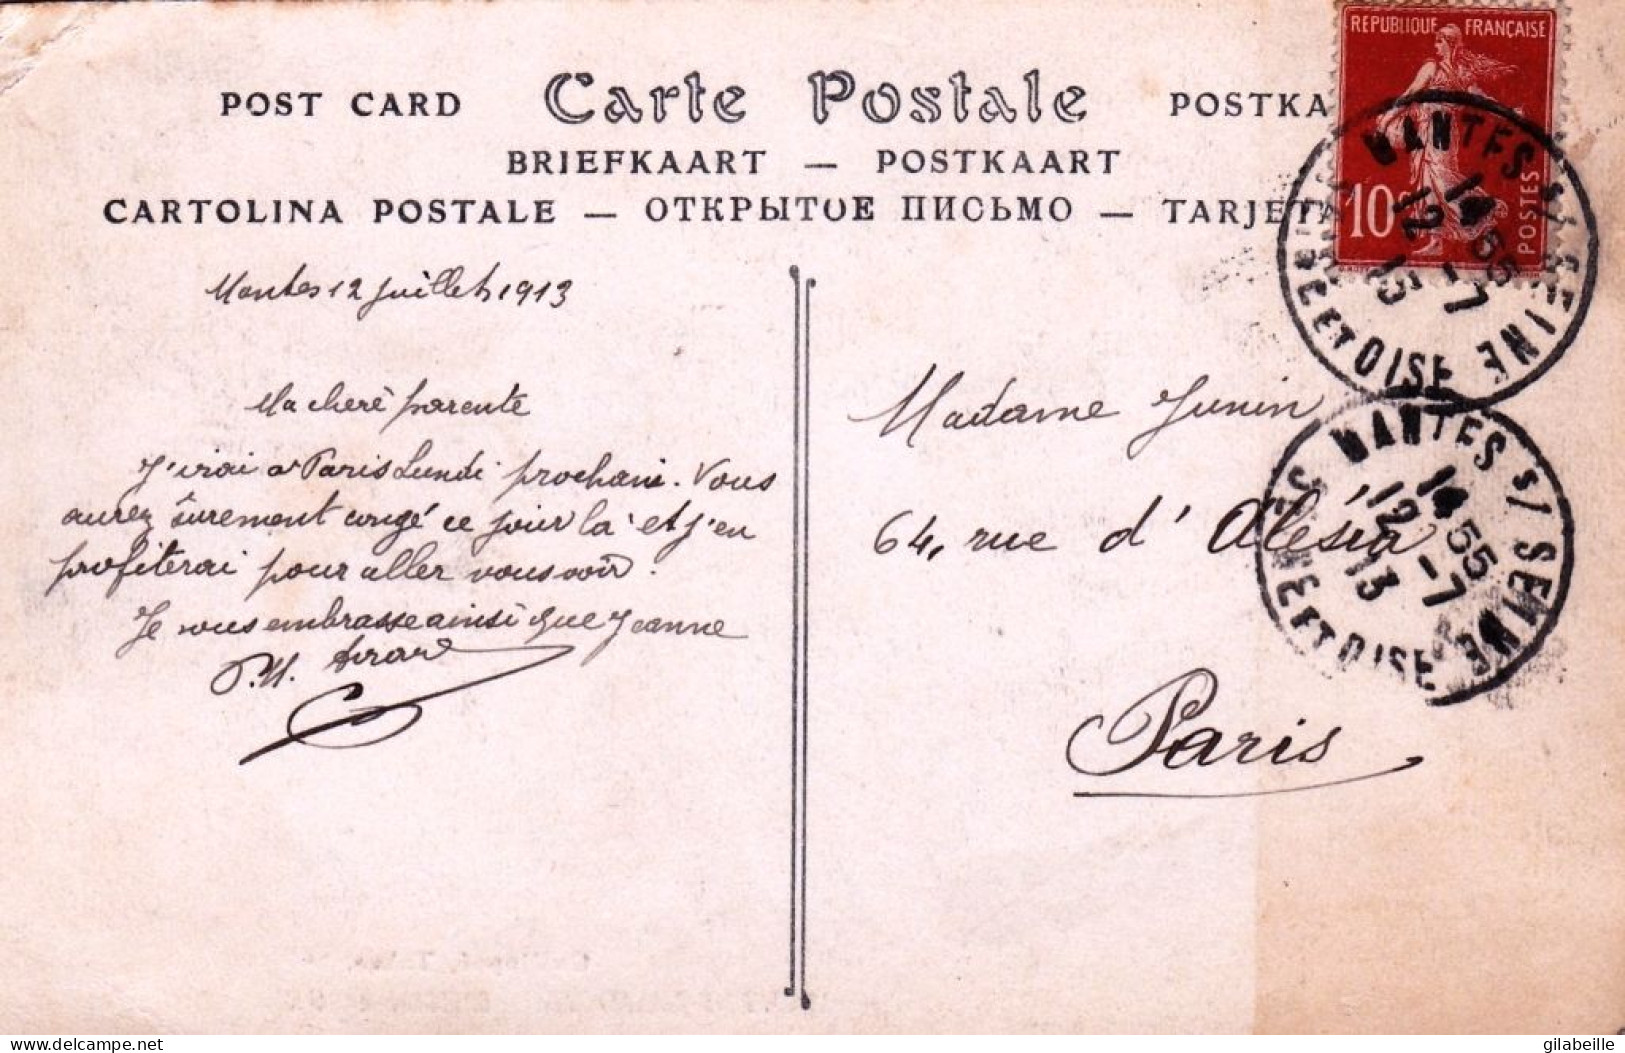 POST CARD Carte Postale POSTKA
BRIEFKAART — POSTKAART
CARTOLINA POSTALE — ОТКРЫТОЕ ПИСЬМО — TARJETA
REPUBLIQUE FRANÇAISE
10c
POSTES
MANTES S/ SEINE
14 55
12 - 7
13
SEINE ET OISE
MANTES S/ SEINE
14 55
12 - 7
13
SEINE ET OISE
Mantes 12 juillet 1913
Ma chère parente
J'irai à Paris Lundi prochain. Vous
aurez sûrement congé ce jour là et j'en
profiterai pour aller vous voir.
Je vous embrasse ainsi que Jeanne
Madame Junin
64, rue d'Alésia
Paris
delcampe.net
gilabeille